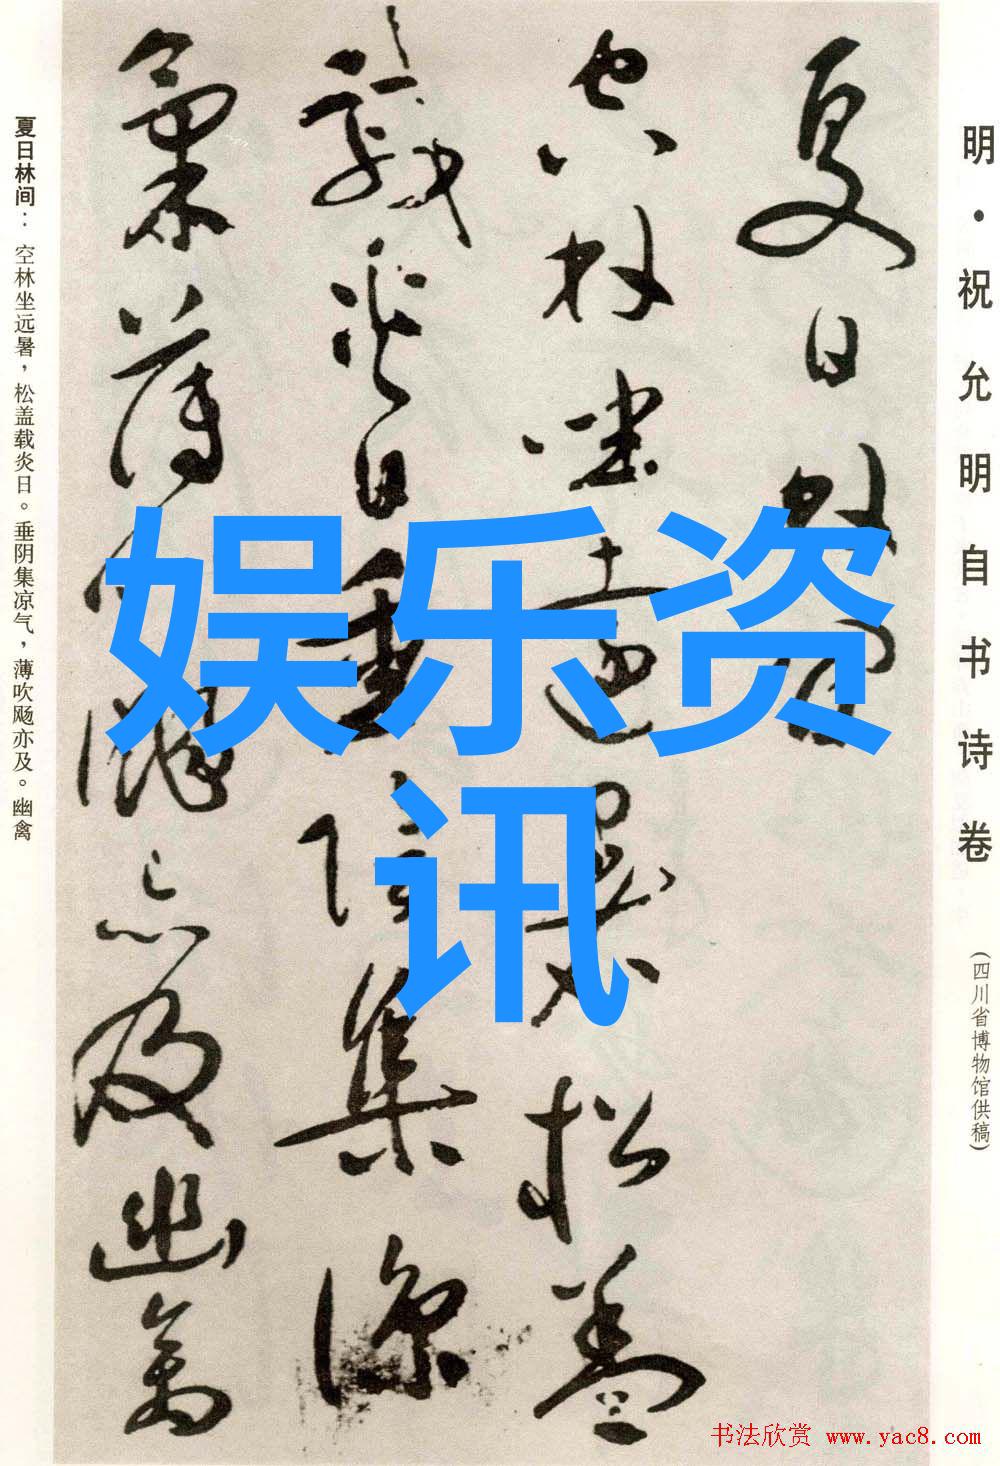 明·祝允明自书诗卷
(四川省博物馆供稿)
夏日林间
空林坐远暑松盖
载炎日垂阴集凉
气薄吹飏亦及幽禽
夏日林间：空林坐远暑，松盖载炎日。垂阴集凉气，薄吹飏亦及。幽禽
娱乐资
讯
书法欣赏 www.yac8.com